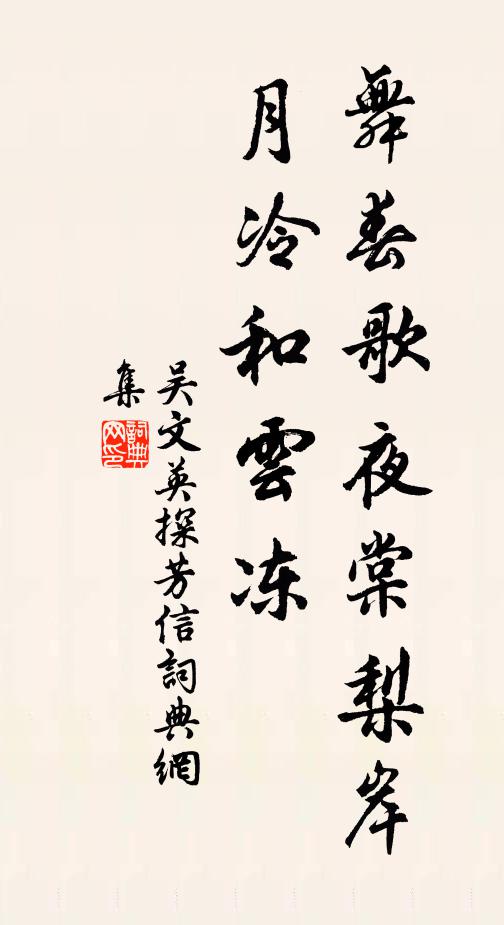 舞春歌夜棠梨岸
月冷和雲冻
吴文英探芳信詞典網
集
詞典
网印